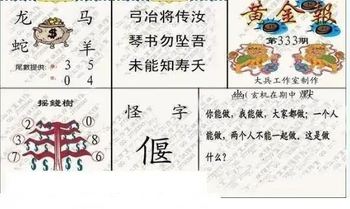 龙 马
蛇 羊
尾數提供: 3 5
0 4
弓冶将传汝
琴书勿坠吾
未能知寿夭
黄金報
第333期
大兵工作室制作
摇錢樹
0 2
7 3
8 6
怪 字
偃
幽(玄机在期中)默
你能做,我能做,大家都做;一个人
能做,两个人不能一起做。这是做
什么?